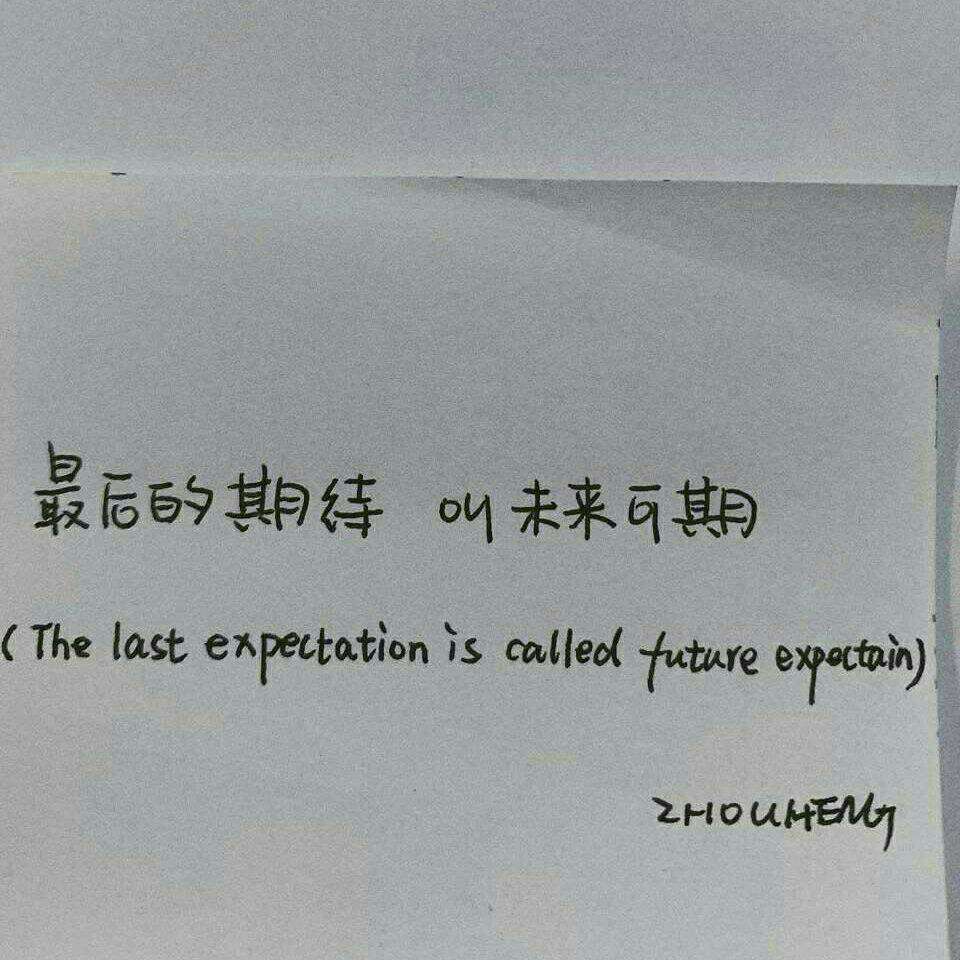 最后的期待 叫未来可期
(The last expectation is called future expectain)
ZHOUHENG